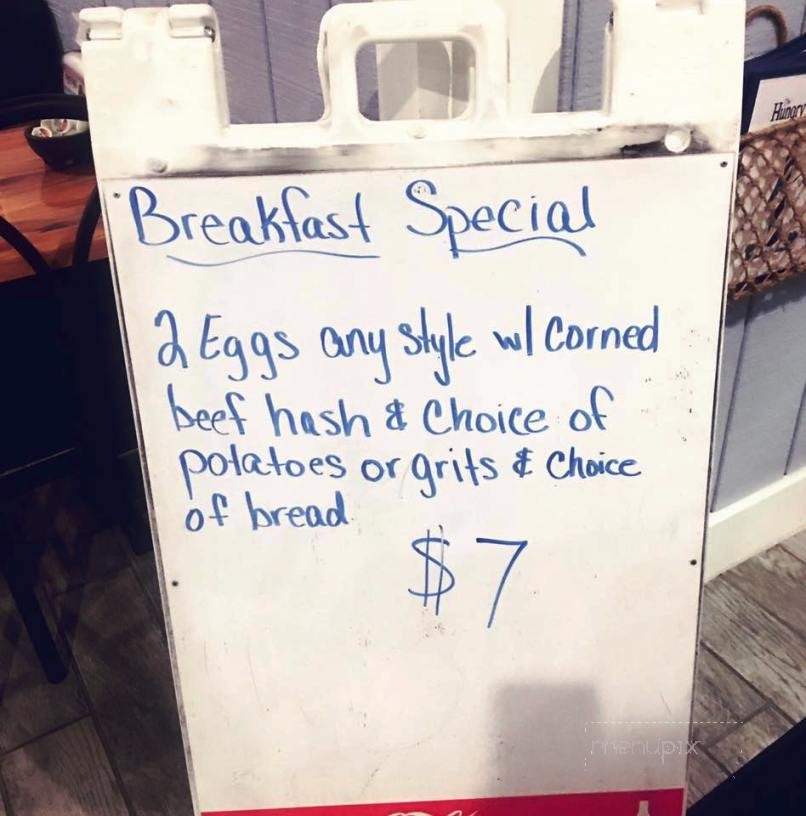 Breakfast Special
2 Eggs any style w/ Corned
beef hash & Choice of
potatoes or grits & Choice
of bread
$7
Hungry
menupix